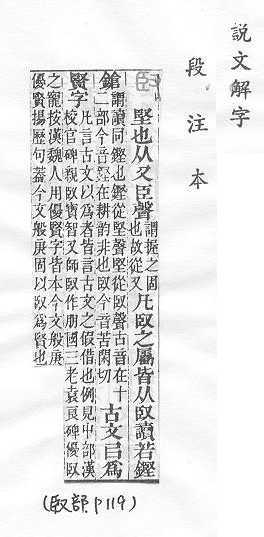 說文解字
段注本
臤
堅也从又臣聲謂握之固
也故從又凡臤之屬皆从臤讀若鏗
鎗謂讀同鏗也鏗從堅聲堅從臤聲古音在十
二部今音鏗在耕韵非也臤今音苦閑切古文㠯爲
賢字凡言古文以爲者皆言古文之假借也例見屮部漢
校官碑親臤寶智又師臤作朋國三老袁良碑優臤
之寵按漢魏人用優賢字皆本今文般庚
優賢揚歷句蓋今文般庚固以臤爲賢也
(臤部 p119)